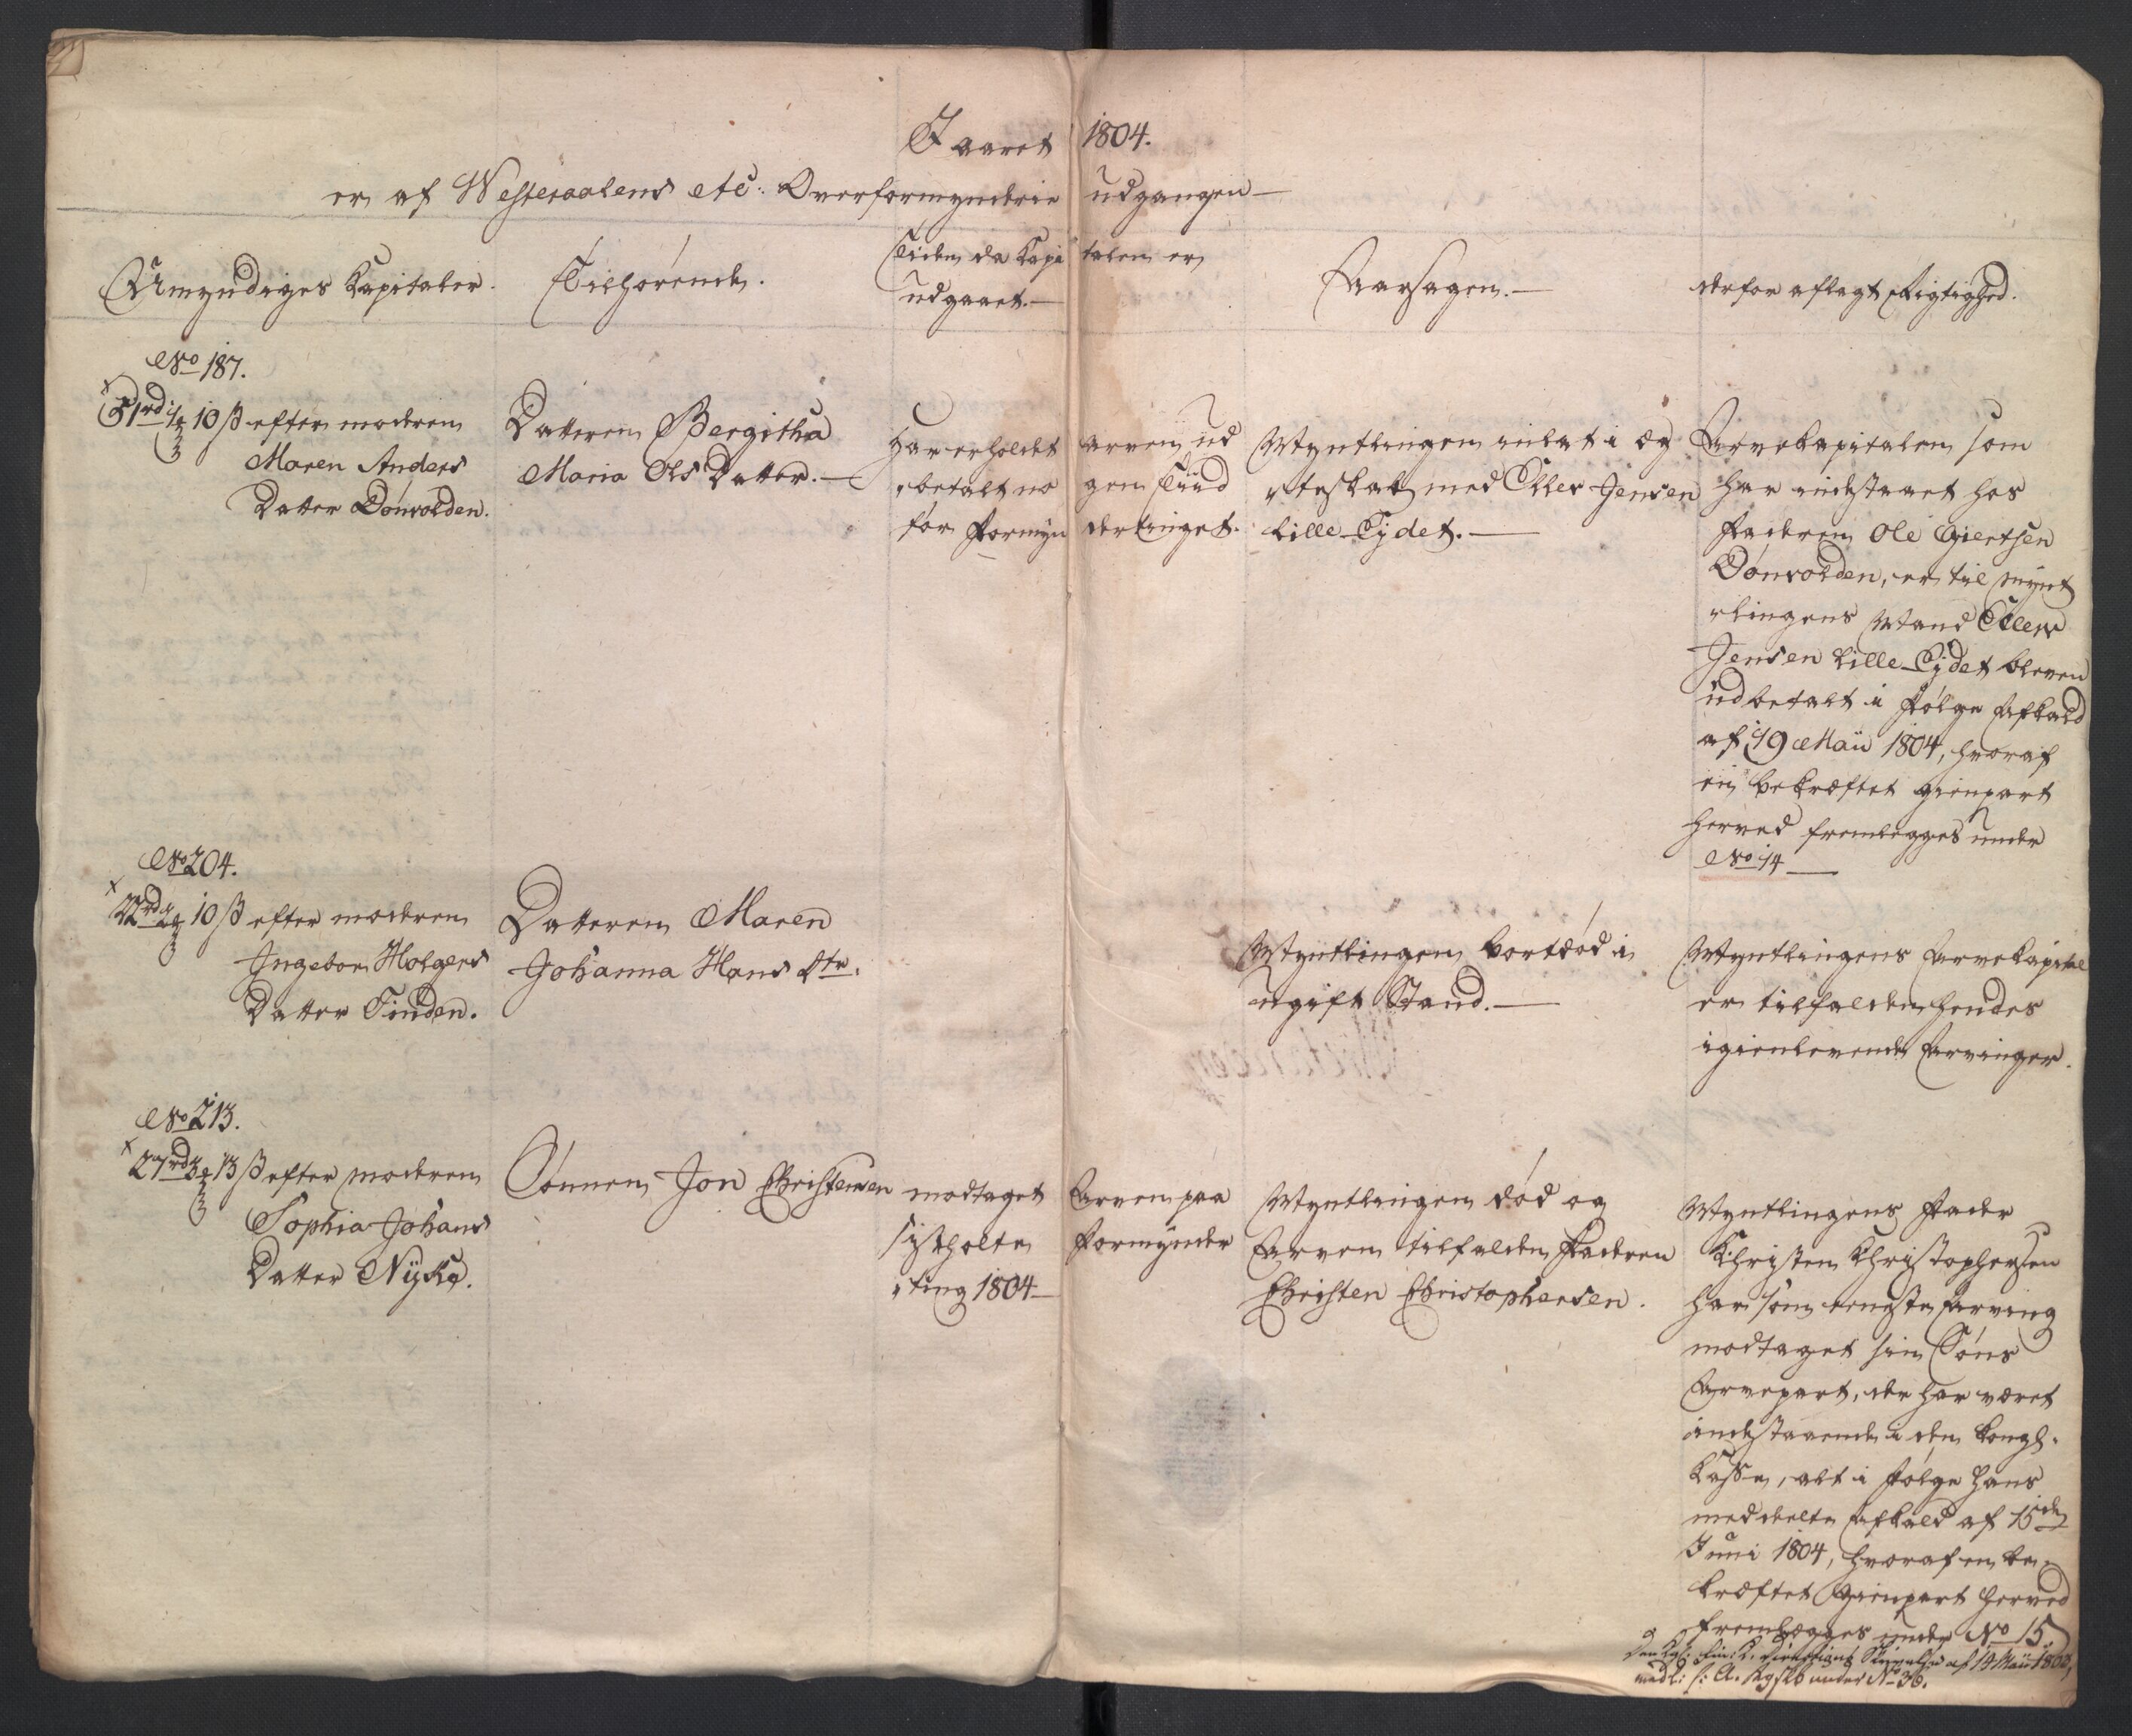 I aaret 1804.
er af Westeraalens etc: Overformynderie udgangen —
Umyndiges Kapitaler.
Tilhørende.
Tiden da Kapitalen er
udgaaet. —
Aarsagen. —
derfor aflagt Rigtighed.
No 187.
10 ß efter moderen
Maren Anders
Datter Dönvolden.
Datteren Bergitha
Maria Ols Datter. —
har erholdt arven ud
betalt no gen Tiid
før Formyn dertinget.
Myntlingen inlat i æg
teskab med Eller Jensen
Lille-Eydet. —
Arvekapitalen som
har indestaaet hos
Faderen Ole Giertsen
Dönvolden, er til Mynt
lingens Mand Eller
Jensen Lille-Eydet bleven
udbetalt i Følge Afkald
af 19 Maii 1804, hvoraf
en bekræftet gienpart
herved fremlegges under
No 14 —
No 204.
10 ß efter moderen
Ingebor Holgers
Datter Tinden.
Datteren Maren
Johanna Hans Dtr.
Myntlingen bortdød i
ugift Stand. —
Myntlingens Arvekapital
er tilfalden hendes
igienlevende Arvinger.
No 213.
27 rd 3 13 ß efter moderen
Sophia Johans
Datter Nyke.
Sønnen Jon Christensen
modtaget Arven paa
sistholte Formynder
ting 1804 —
Myntlingen død og
Arven tilfalden Faderen
Christen Christophersen.
Myntlingens Fader
Christen Christophersen
har som eneste Arving
modtaget sin Søns
Arvepart, der har været
indestaaende i den kongl.
Kasse, alt i Følge hans
meddeelte Afkald af 15de
Juni 1804, hvoraf en be
kræftet Gienpart herved
fremlægges under No 15.
Skrivelse af 14 Maii
under No 36.